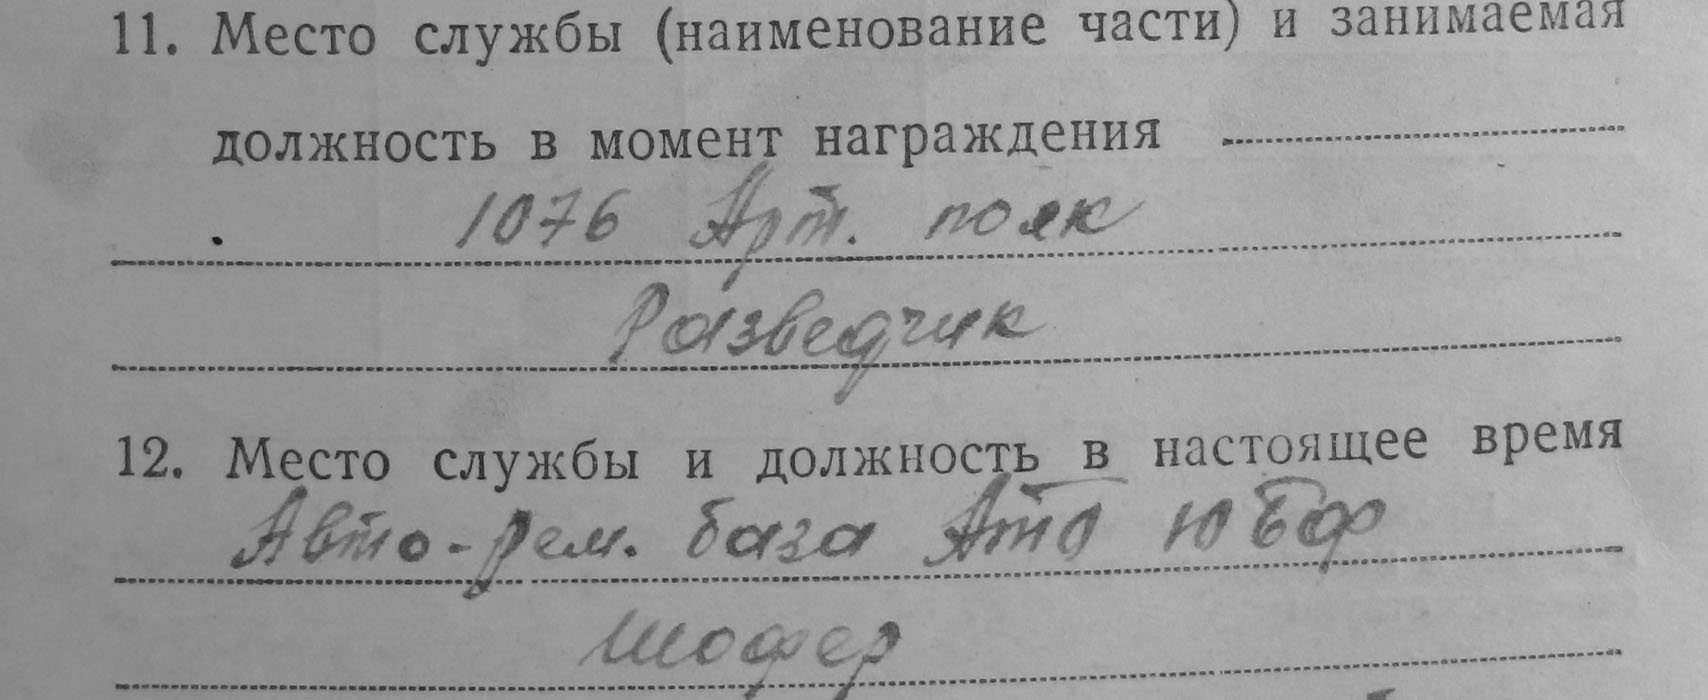 11. Место службы (наименование части) и занимаемая
должность в момент награждения
1076 Арт. полк
Разведчик
12. Место службы и должность в настоящее время
Авто-рем. база Ато ЮБФ
шофер